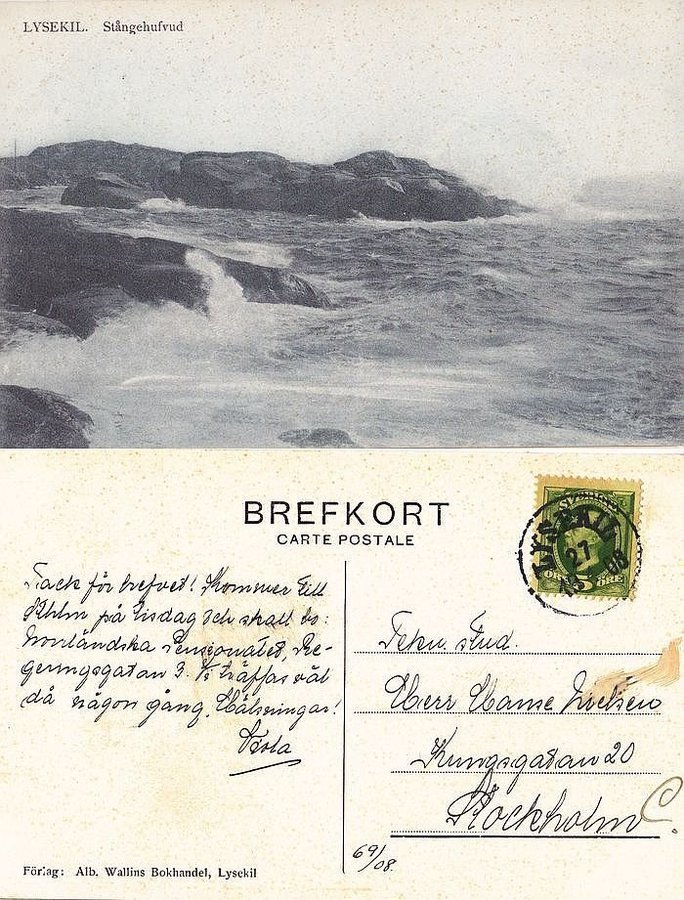 LYSEKIL. Stångehufvud
BREFKORT
CARTE POSTALE
SVERIGE
LYSEKIL
27
08
5
ÖRE
Tack för brefvet! Kommer till
Sthlm på tisdag och skall bo:
Norrländska Pensionatet, Re-
geringsgatan 3. träffas väl
då någon gång. Hälsningar!
Tekn. stud.
Herr Hanse Nielsen
Kungsgatan 20
Stockholm C.
69/08.
Förlag: Alb. Wallins Bokhandel, Lysekil